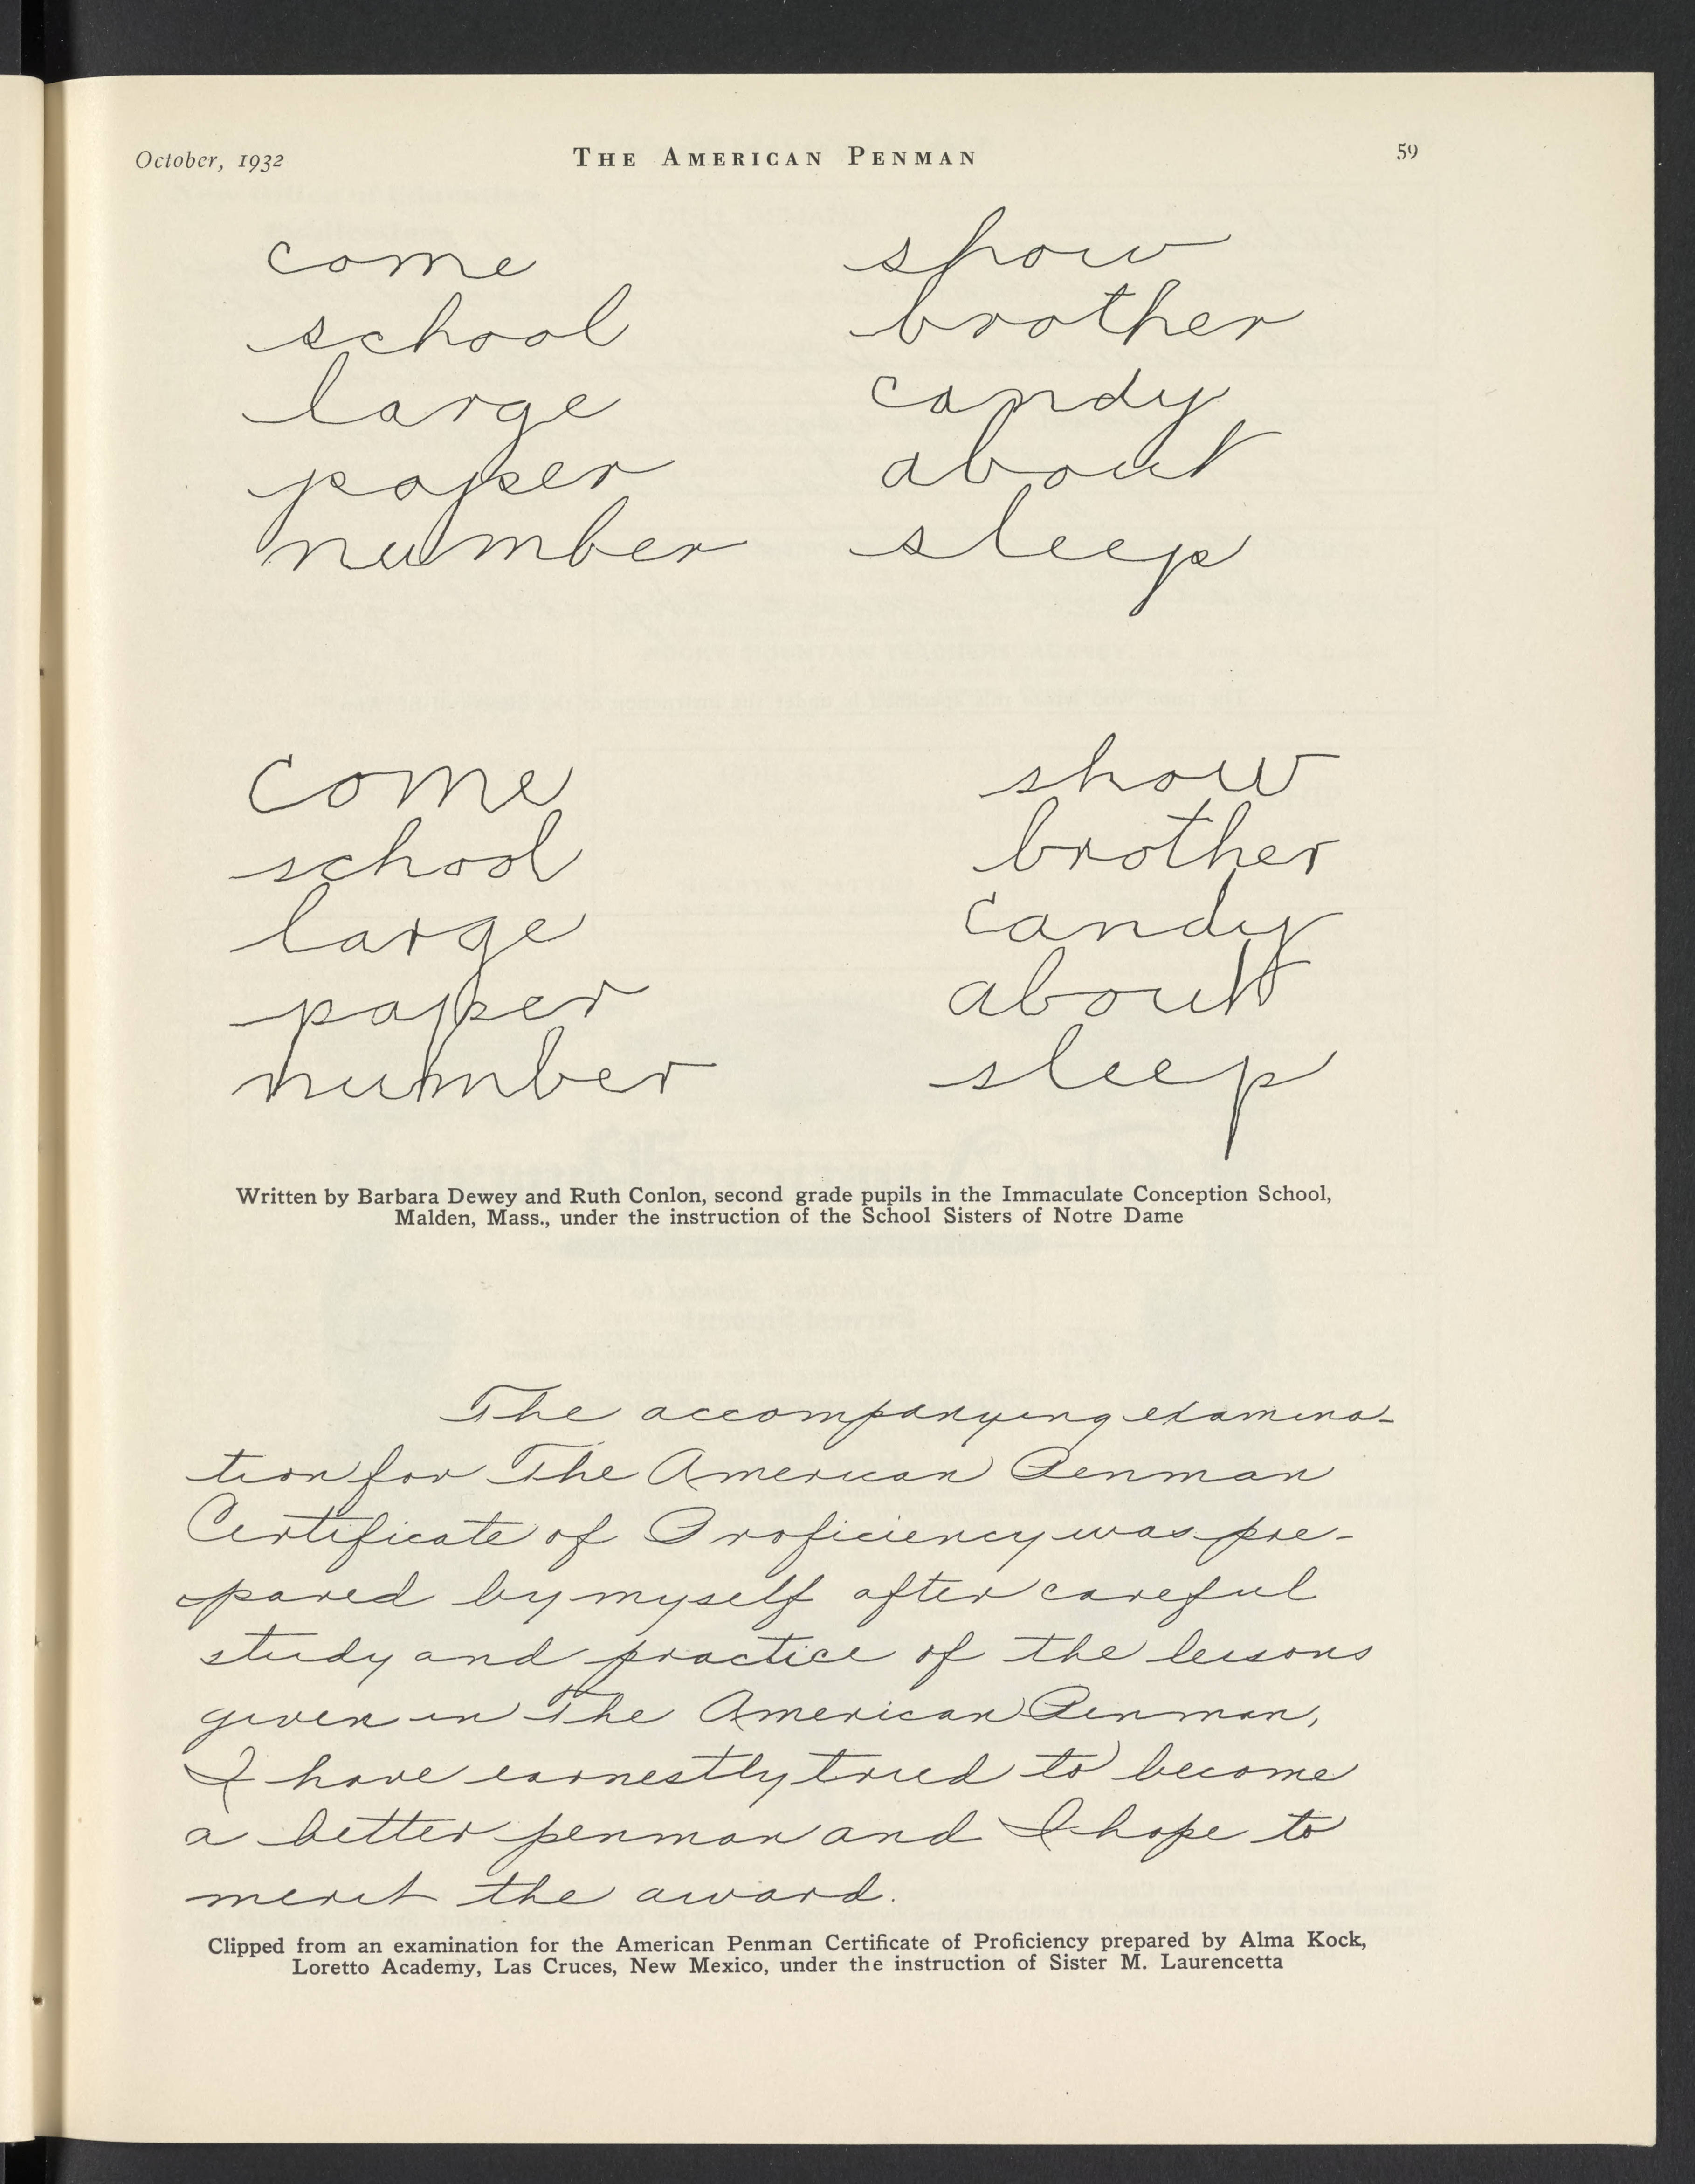 October, 1932 THE AMERICAN PENMAN 59
come
school
large
paper
number
show
brother
candy
about
sleep
come
school
large
paper
number
show
brother
candy
about
sleep
Written by Barbara Dewey and Ruth Conlon, second grade pupils in the Immaculate Conception School,
Malden, Mass., under the instruction of the School Sisters of Notre Dame
The accompanying examina-
tion for The American Penman
Certificate of Proficiency was pre-
pared by myself after careful
study and practice of the lessons
given in The American Penman,
I have earnestly tried to become
a better penman and I hope to
merit the award.
Clipped from an examination for the American Penman Certificate of Proficiency prepared by Alma Kock,
Loretto Academy, Las Cruces, New Mexico, under the instruction of Sister M. Laurencetta